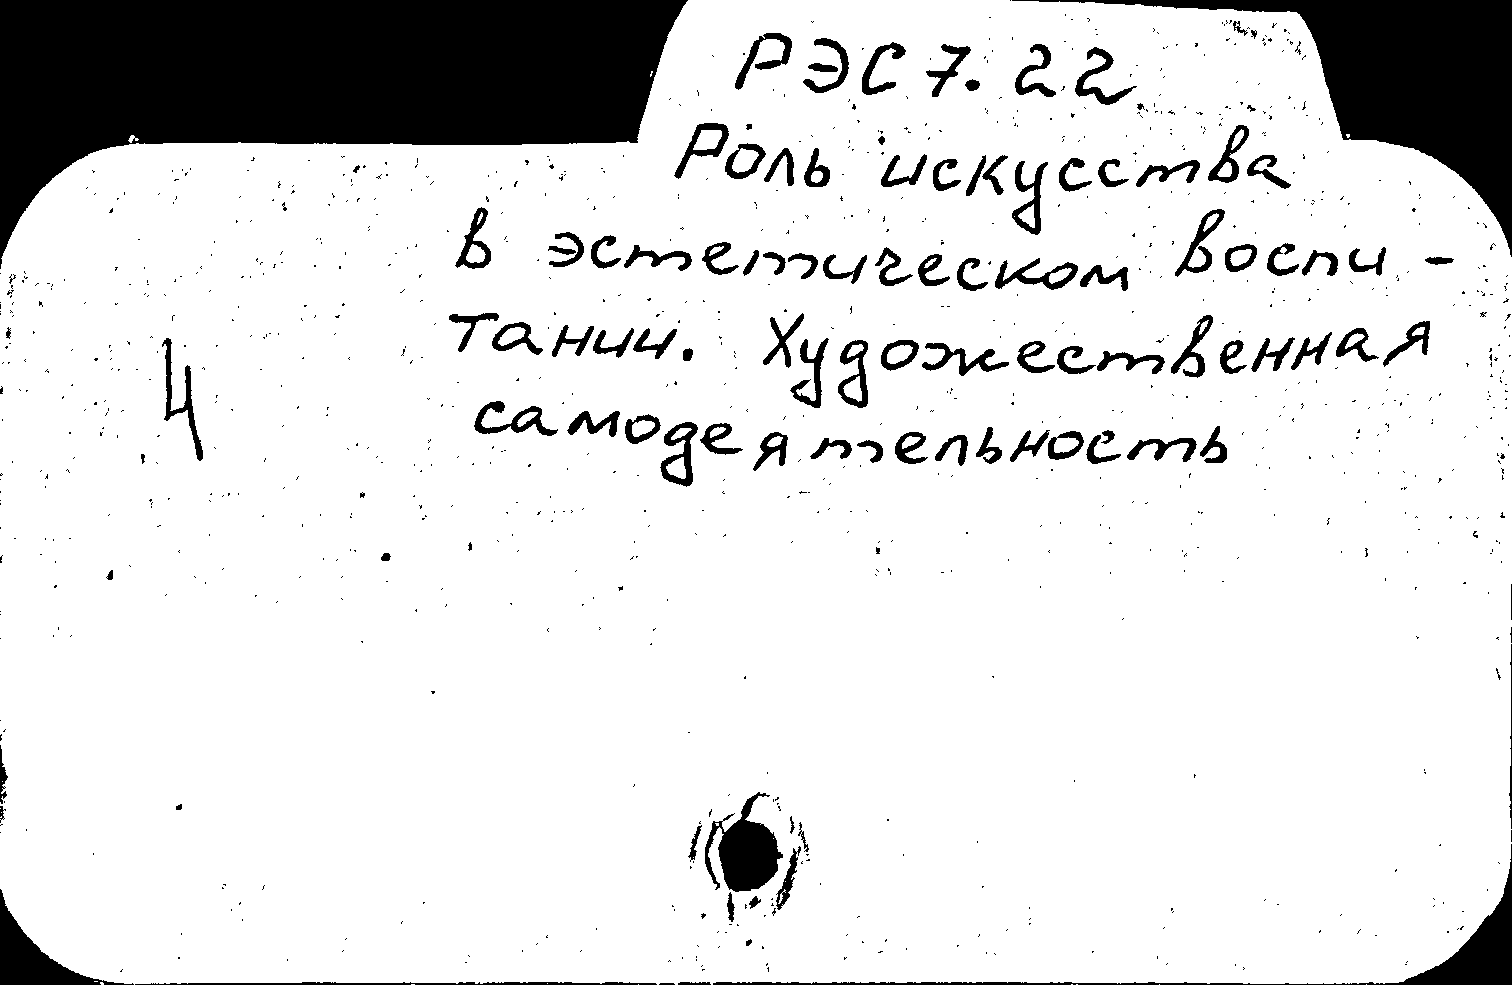 РЭС 7.22
Роль искусства
в эстетическом воспи -
тании. Художественная
4
самодеятельность